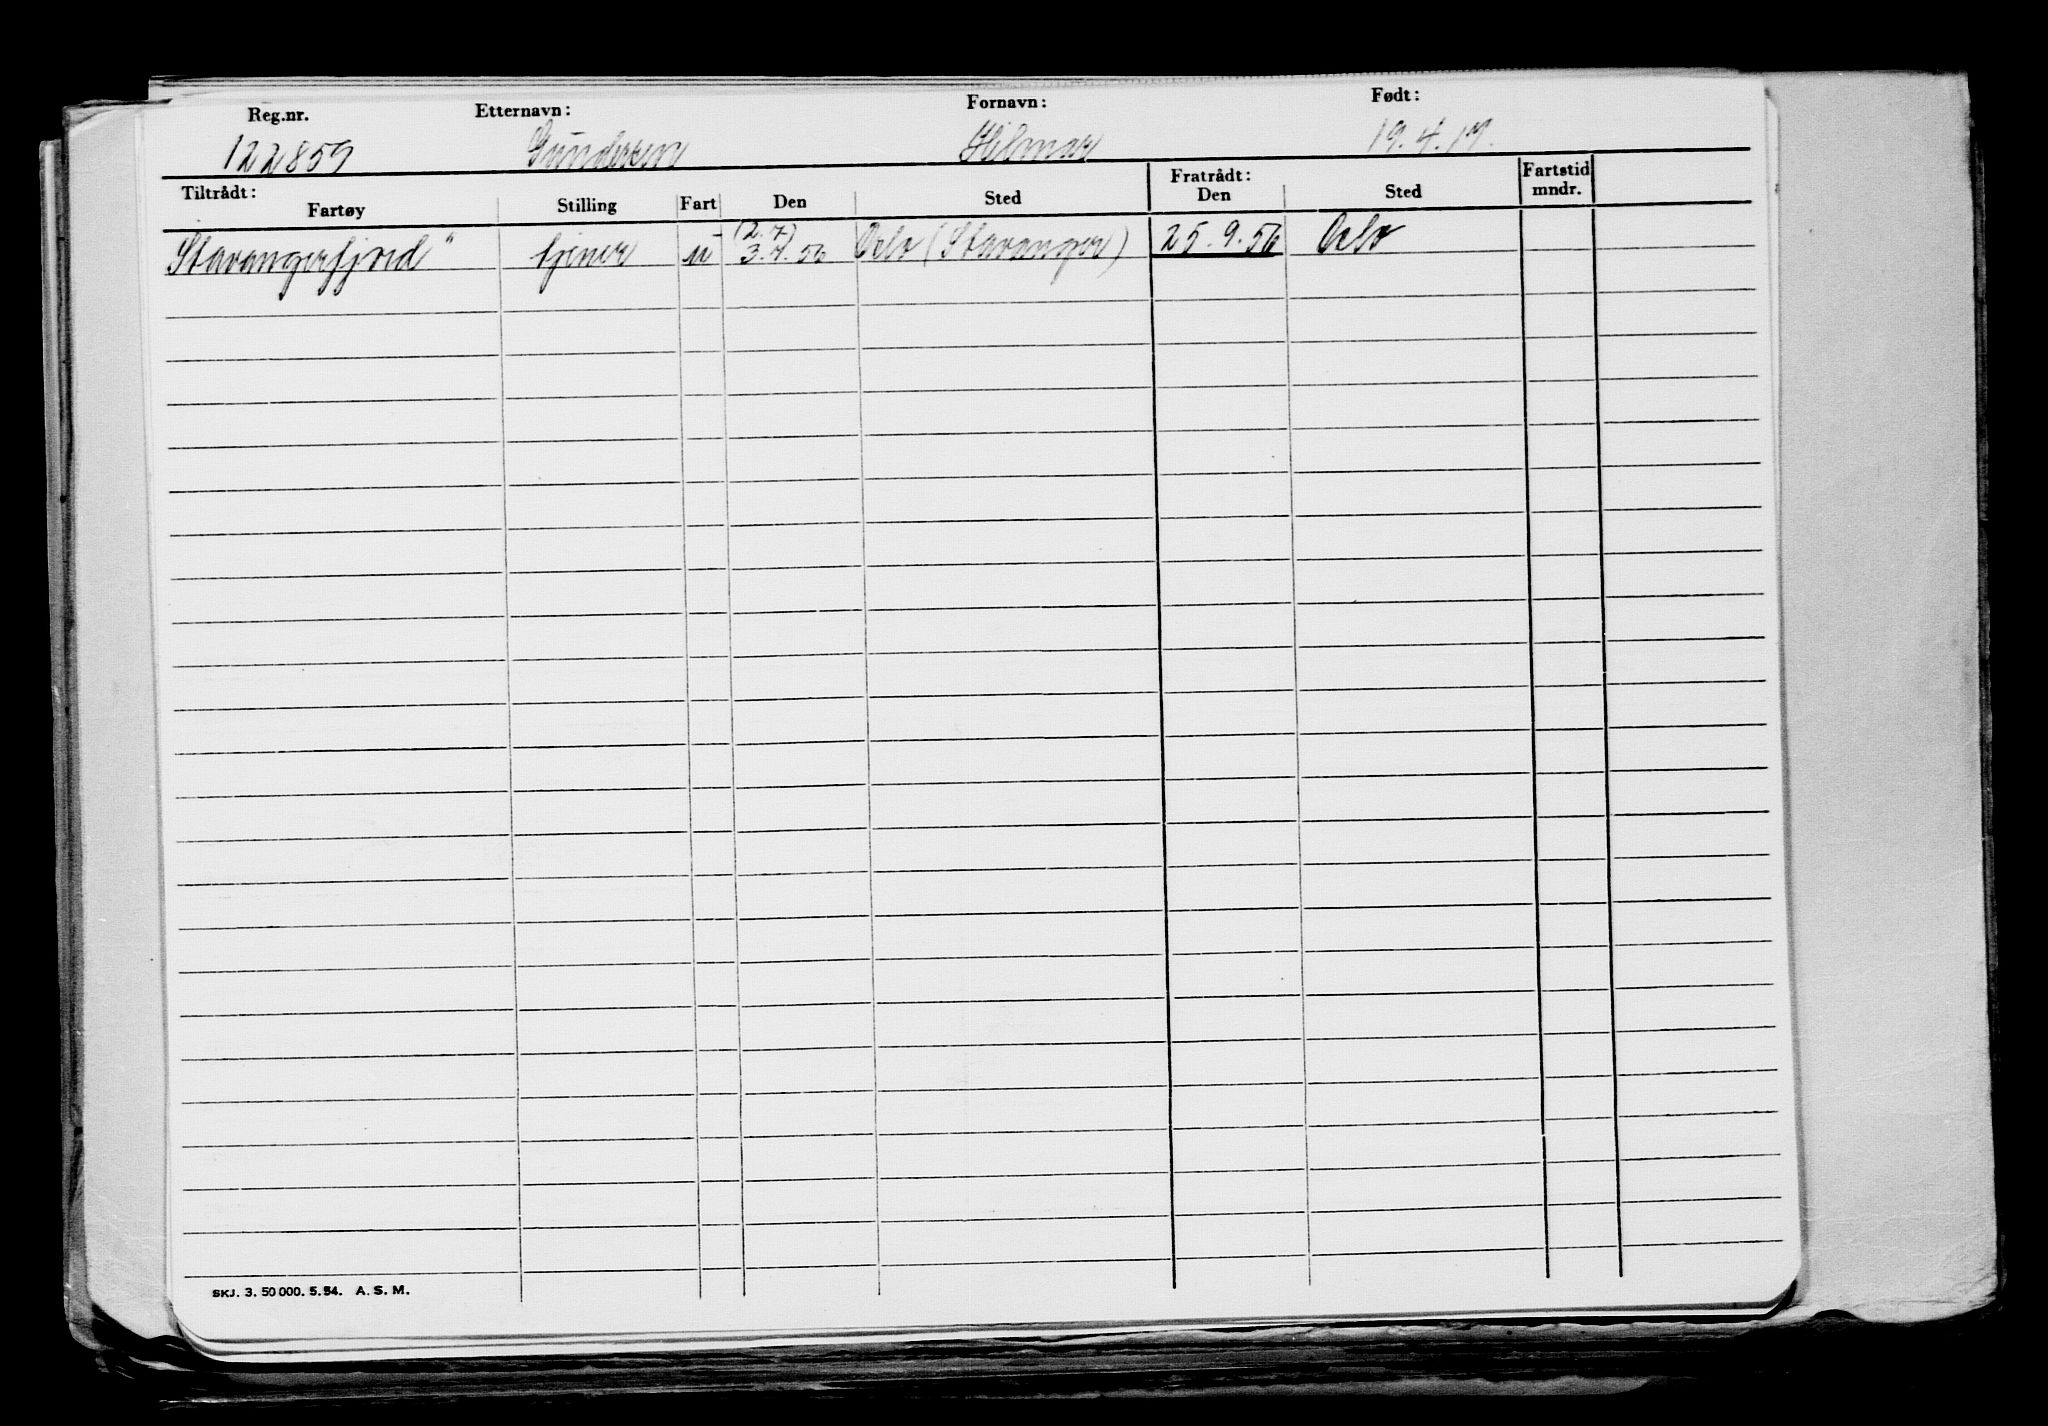 Reg.nr. Etternavn: Fornavn: Født:
122859 Gundersen Hilmar 19.4.19.
Tiltrådt: Fratrådt: Fartstid
Fartøy Stilling Fart Den Sted Den Sted mndr.
(2.7)
Stavangerfjord" tjener u 3.7.56 Oslo (Stavanger) 25.9.56 Oslo
SKJ. 3. 50 000. 5.54. A. S. M.